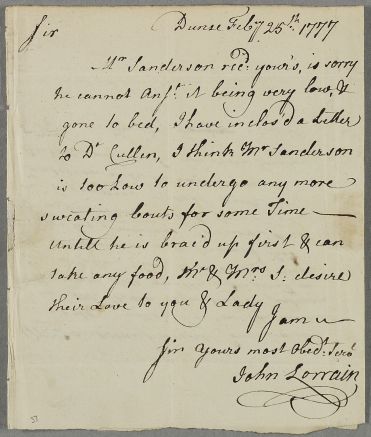 Sir Dunse Feby 25th. 1777
Mr Sanderson recd. your's, is sorry
he cannot Anst. it being very low, &
gone to bed, I have inclos'd a Letter
to Dr Cullen, I think Mr Sanderson
is too Low to undergo any more
sweating bouts for some Time
Untill he is brac'd up first & can
take any food, Mr & Mrs S: desire
their Love to you & Lady
I am
Sir Yours most Obedt. Serv
John Lorrain